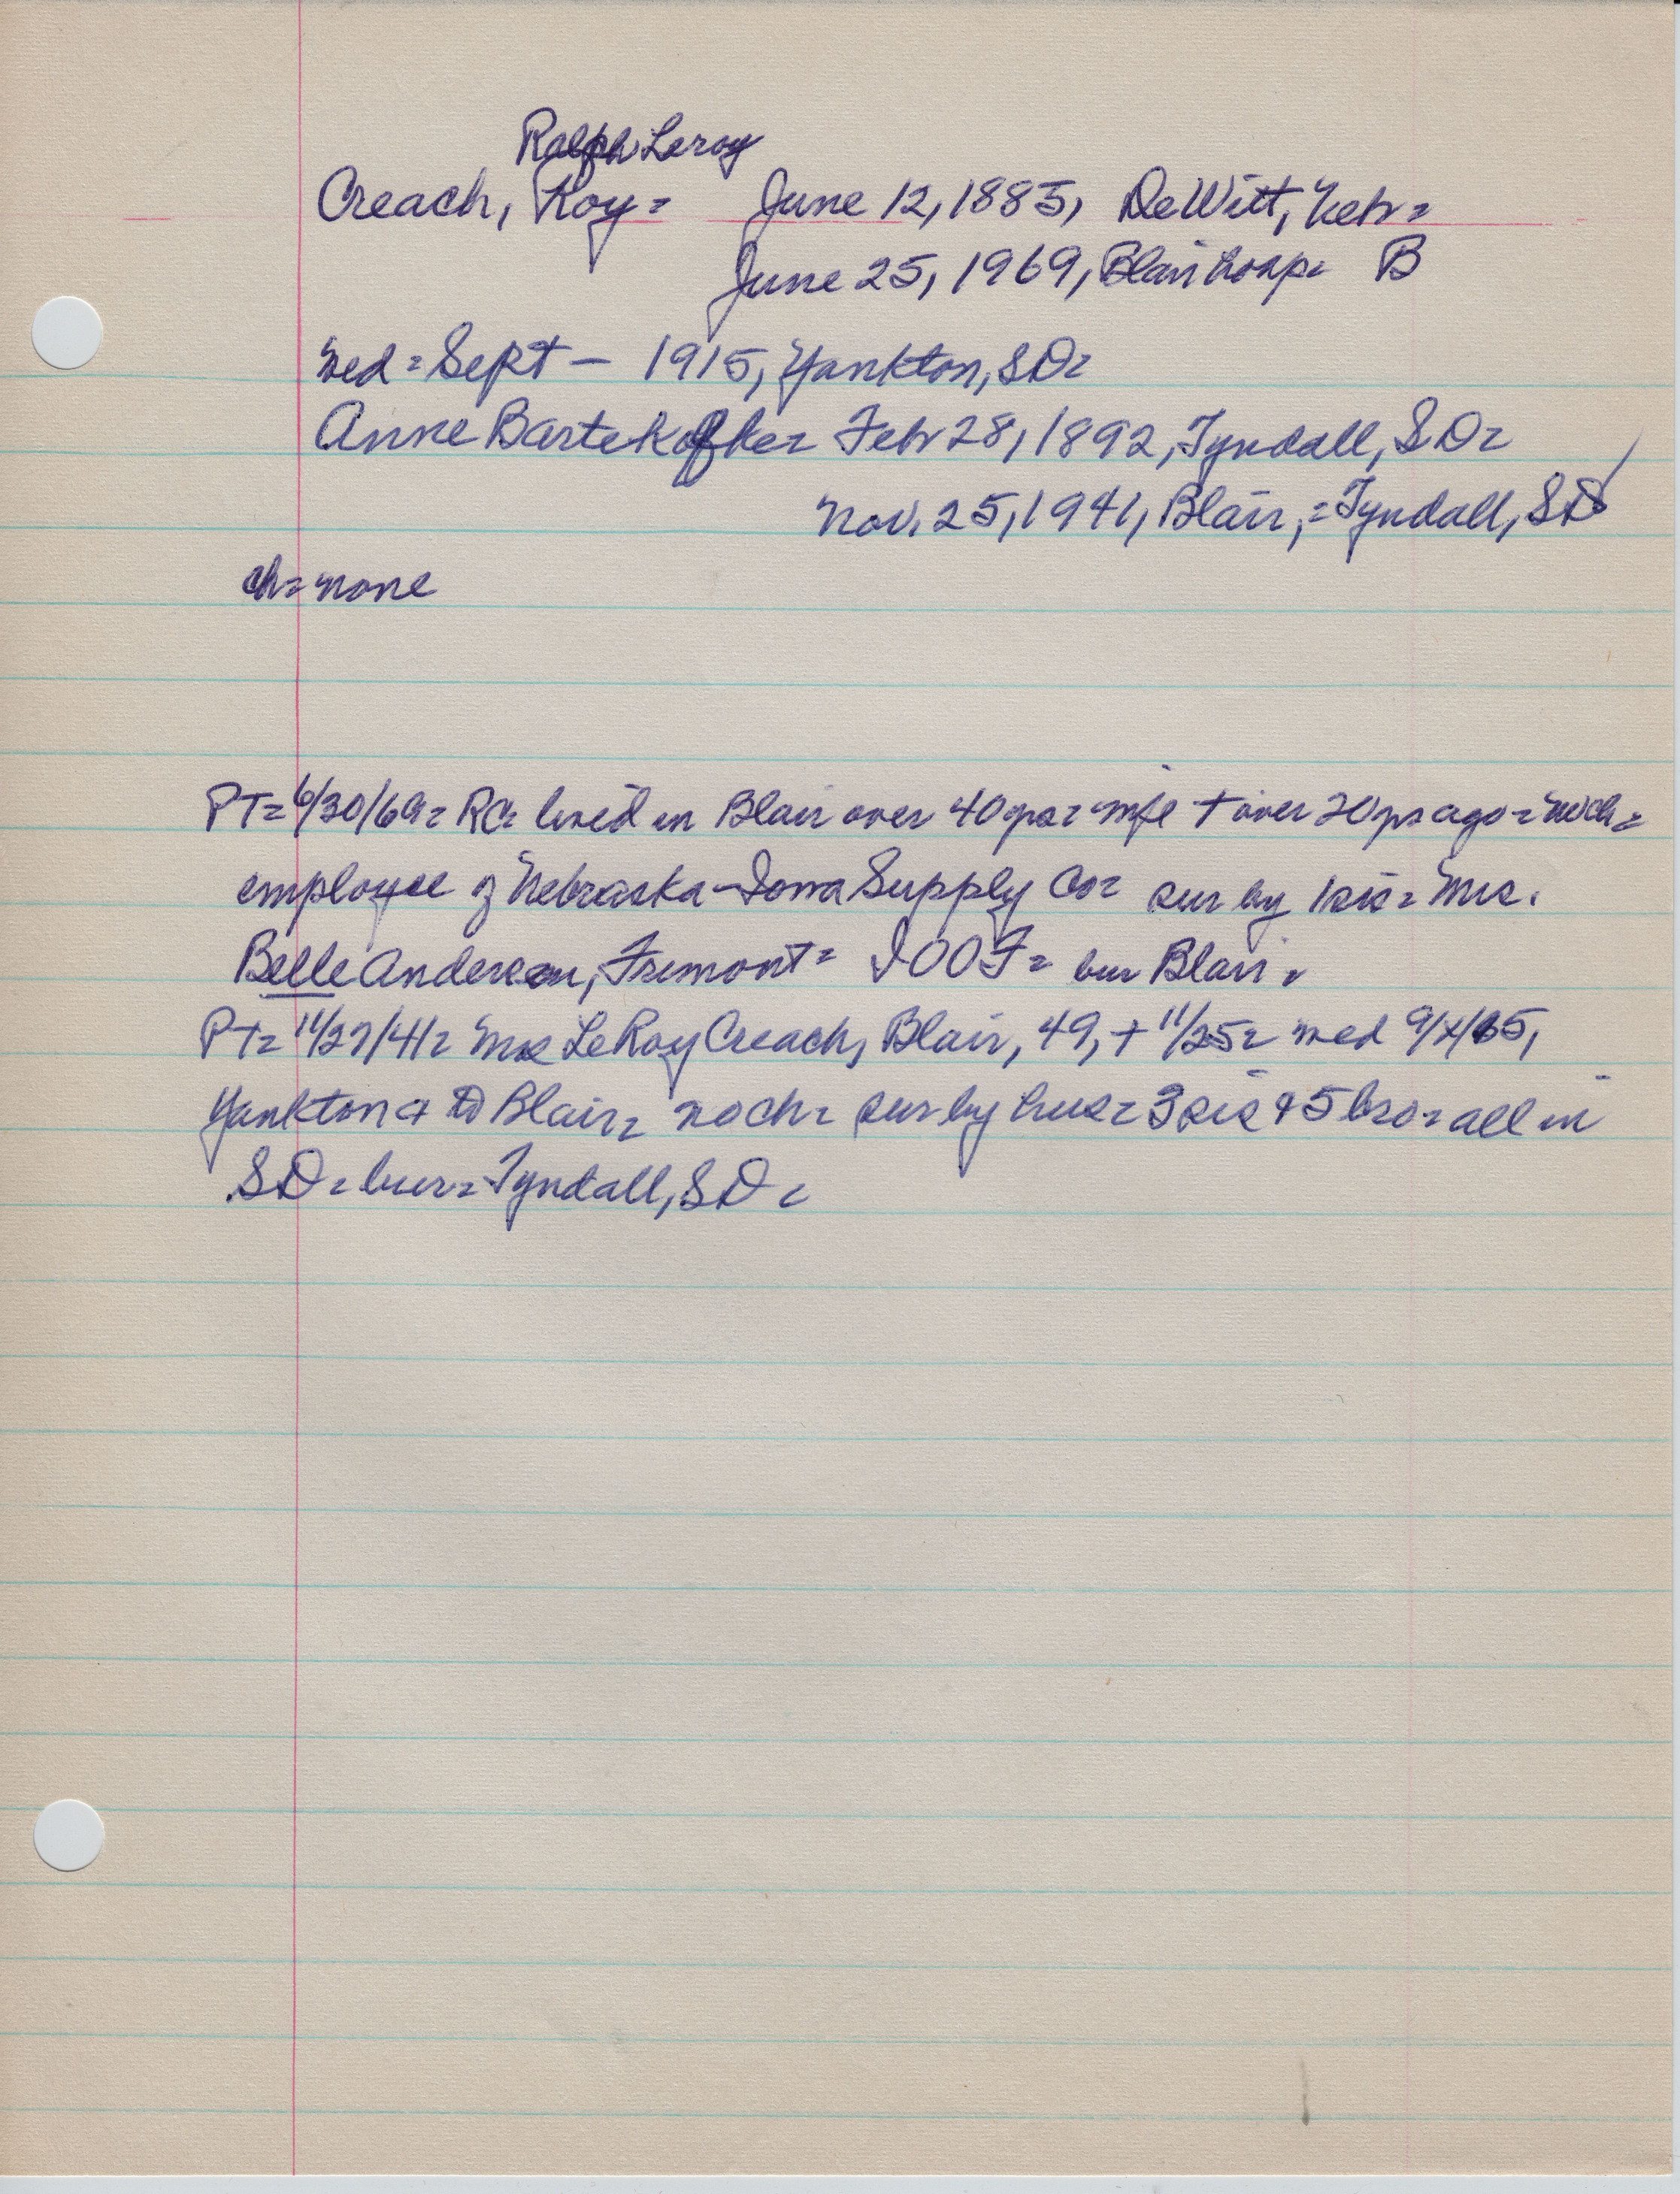 Ralph Leroy
Creach, Roy= June 12, 1885, DeWitt, Nebr=
June 25, 1969, Blair hosp= B
wed=Sept — 1915, Yankton, SD=
Anne Bartekofke= Febr 28, 1892, Tyndall, SD=
Nov. 25, 1941, Blair,=Tyndall, SD
ch=none
PT=6/30/69= RC= lived in Blair over 40 yrs= wife + over 20 yrs ago= no ch=
employee of Nebraska-Iowa Supply Co= sur by 1 sis= Mrs.
Belle Anderson, Fremont= IOOF= bur Blair=
PT=11/27/41= Mrs LeRoy Creach, Blair, 49, + 11/25= wed 9/ /15,
Yankton & to Blair= no ch= sur by hus= 3 sis & 5 bro= all in
SD=bur=Tyndall, SD=